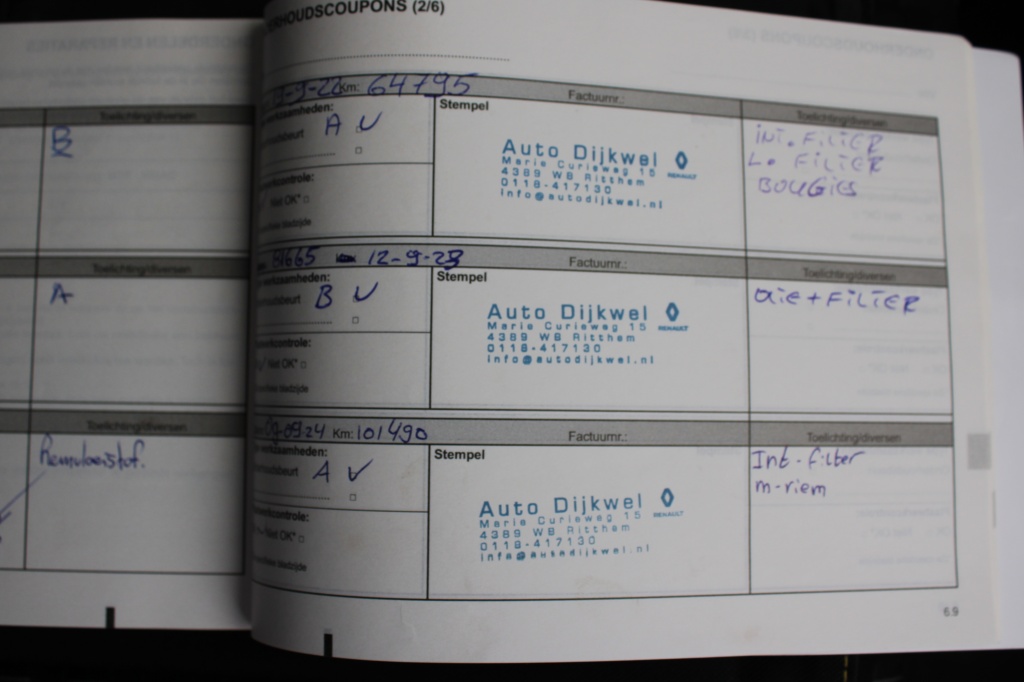 Toelichting/diversen
B
Toelichting/diversen
A
Toelichting/diversen
Remvloeistof.
ERHOUDSCOUPONS (2/6)
-9-22 Km: 64795
Factuurnr.:
Toelichting/diversen
werkzaamheden:
A V
Stempel
Auto Dijkwel
RENAULT
Marie Curieweg 15
4389 WB Ritthem
0118-417130
info@autodijkwel.nl
INT. FILTER
L. FILTER
BOUGIES
controle:
Niet OK*
81665 12-9-23
Factuurnr.:
Toelichting/diversen
werkzaamheden:
B V
Stempel
Auto Dijkwel
RENAULT
Marie Curieweg 15
4389 WB Ritthem
0118-417130
info@autodijkwel.nl
OLIE + FILTER
controle:
Niet OK*
09-09-24 Km: 101490
Factuurnr.:
Toelichting/diversen
werkzaamheden:
A V
Stempel
Auto Dijkwel
RENAULT
Marie Curieweg 15
4389 WB Ritthem
0118-417130
info@autodijkwel.nl
Int-filter
m-riem
controle:
Niet OK*
6.9